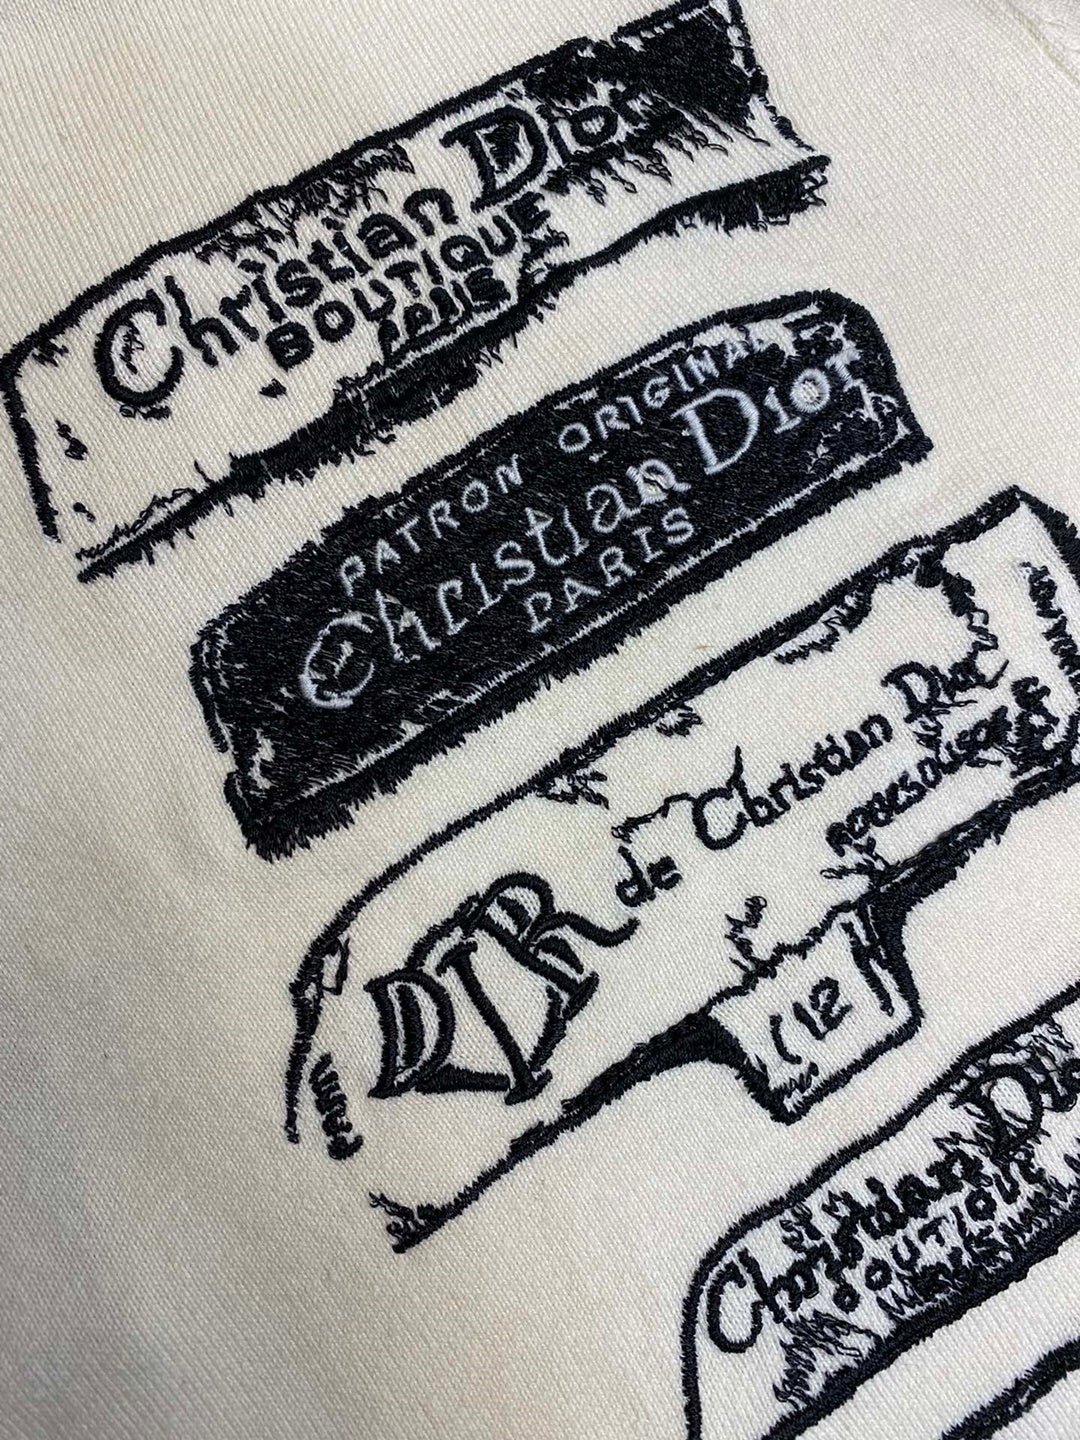 Christian Dior
BOUTIQUE
PARIS
PATRON ORIGINAL
Christian Dior
PARIS
de Christian Dior
12
Christian Dio
BOUTIQUE